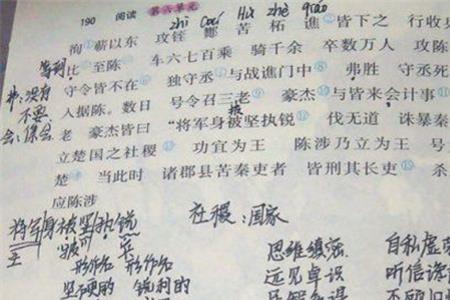 190 阅读 第六单元
zhì Cuó zhè qiáo
徇①蕲以东 攻铚 酂 苦 柘 谯② 皆下之 行收兵
等到
比③至陈 车六七百乘 骑千余 卒数万人 攻陈
弗:没有
守令皆不在 独守丞 与战谯门中 弗胜 守丞死
不要
入据陈。数日 号令召三老 豪杰 与皆来会计事
会:集会
披
老 豪杰皆曰 “将军身被坚执锐 伐无道 诛暴秦
立楚国之社稷 功宜为王 陈涉乃立为王 号
楚 当此时 诸郡县苦秦吏者 皆刑其长吏 杀
应陈涉
将军身被坚执锐 社稷:国家
形作名 形作名
坚硬的 锐利的
思维缜密 自私虚荣
远见卓识 听信谗言